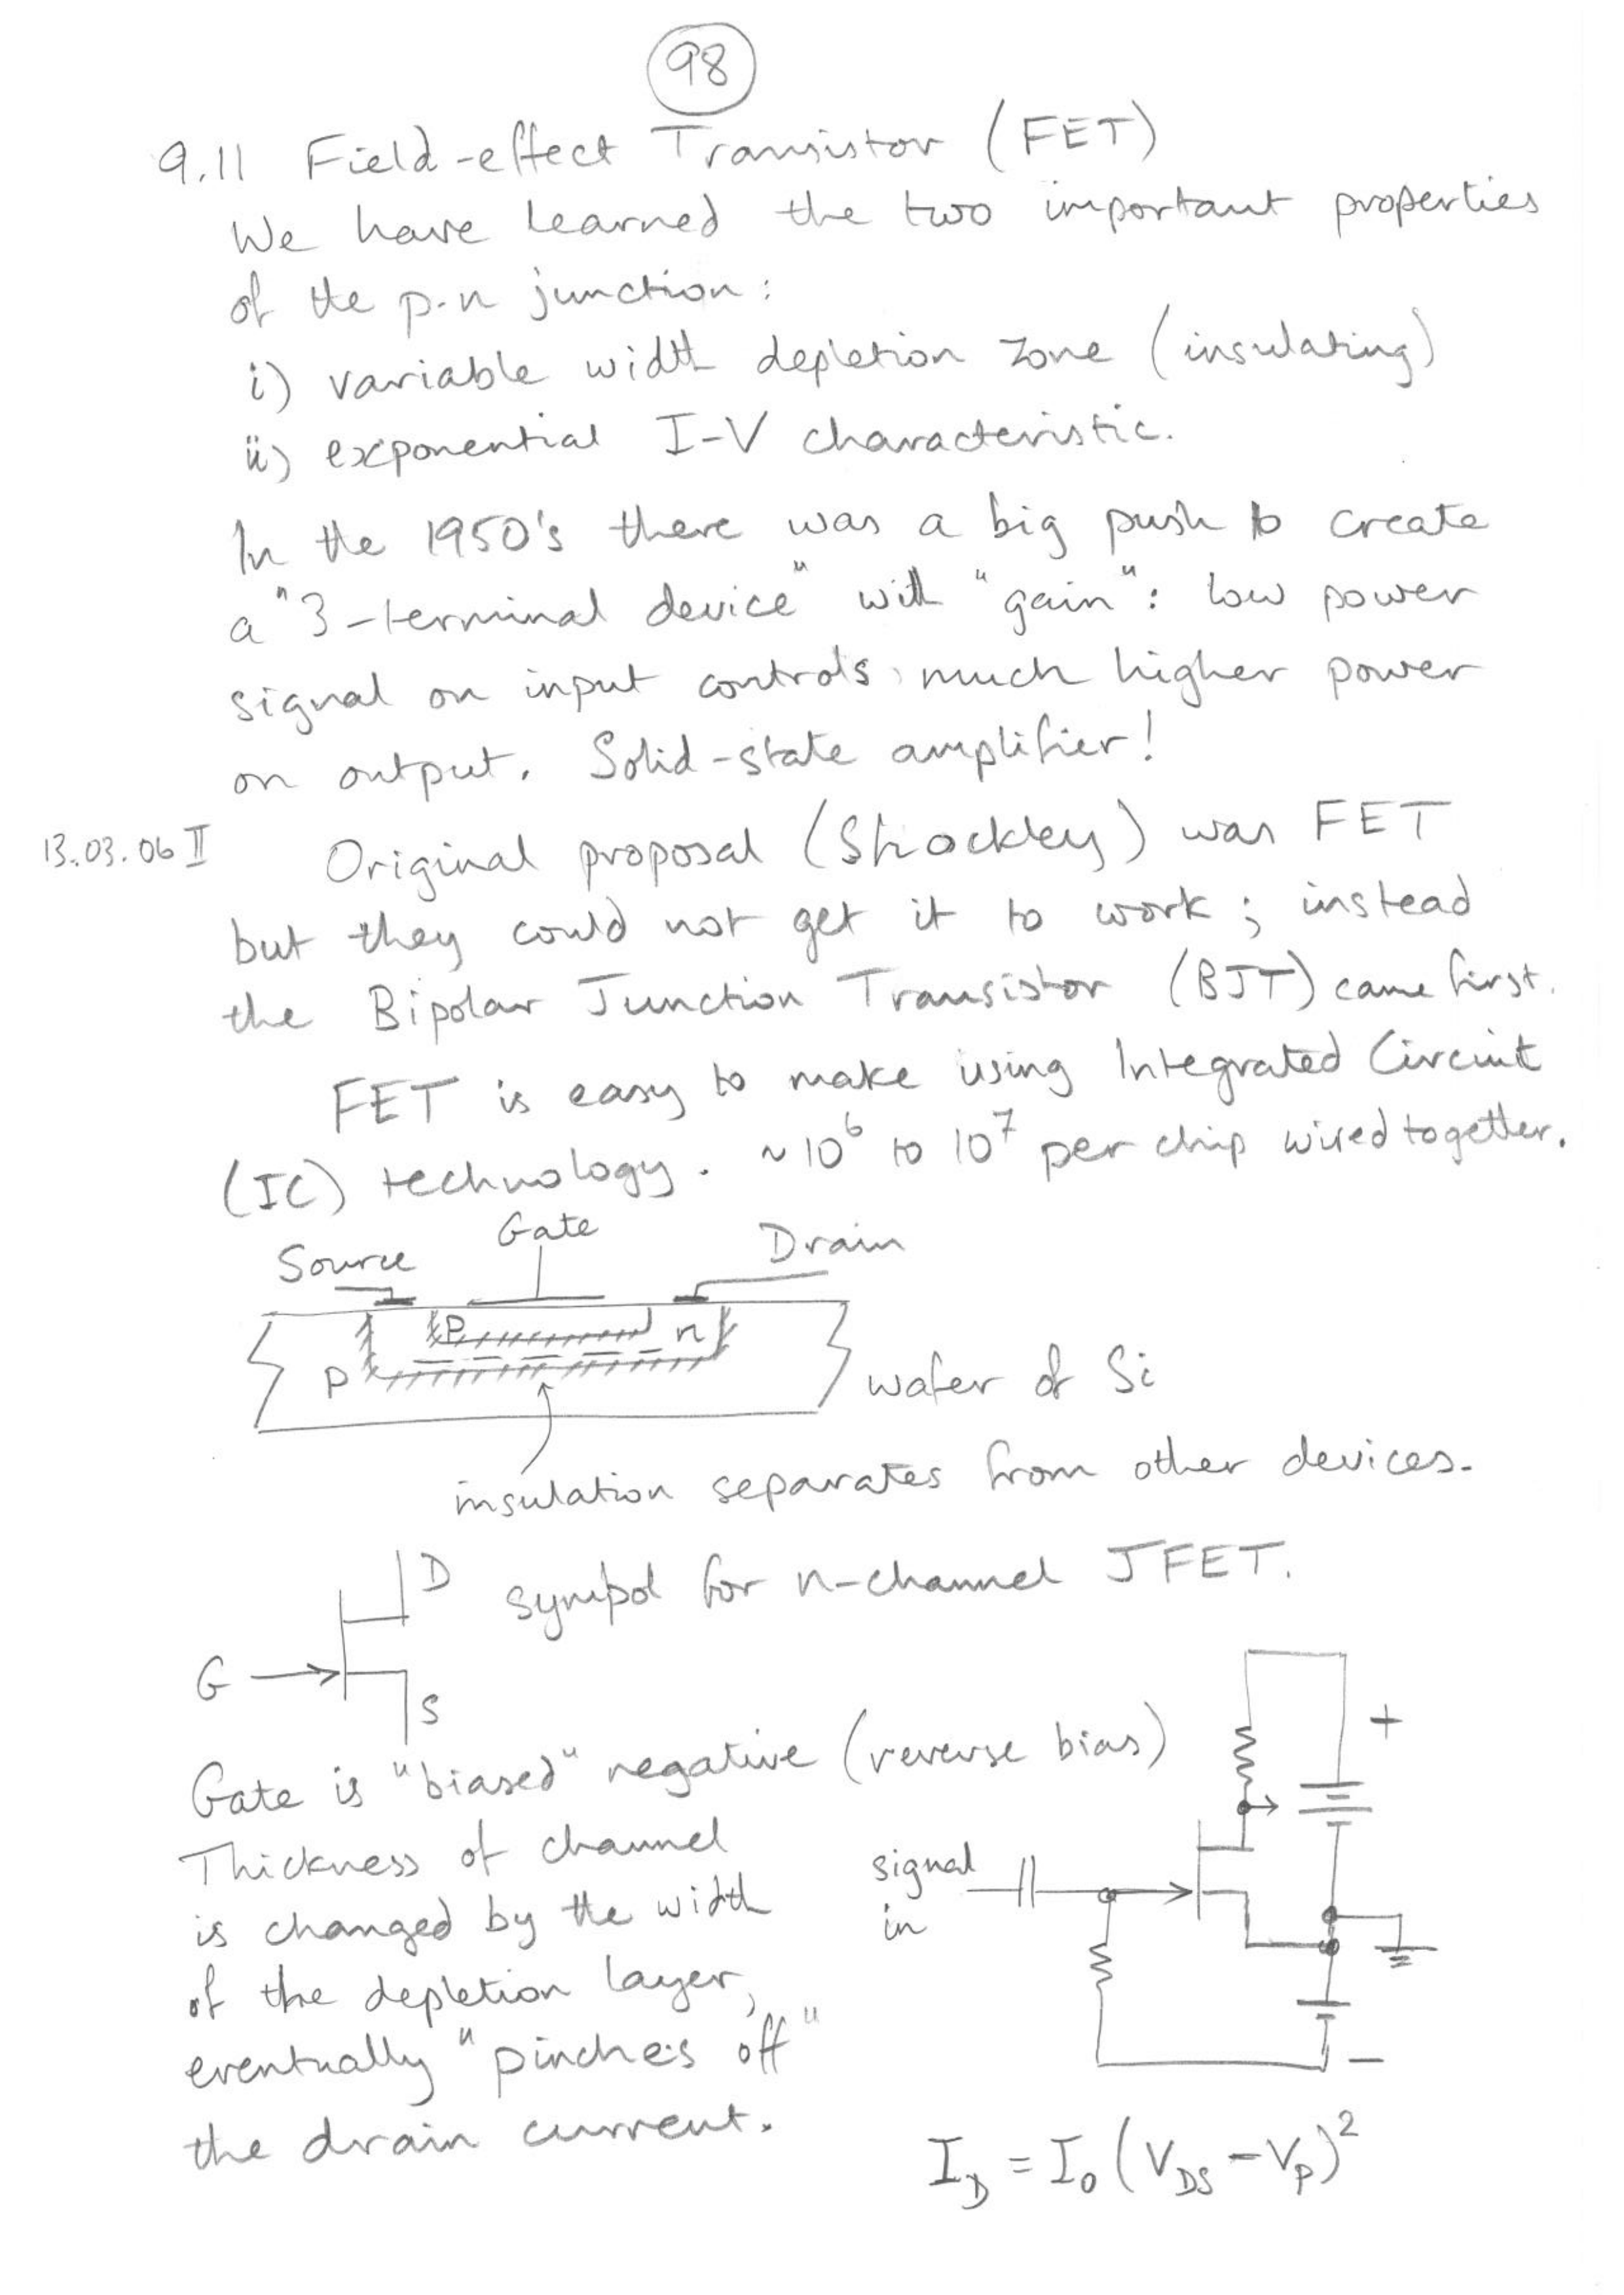 98
9.11 Field-effect Transistor (FET)
We have learned the two important properties
of the p-n junction:
i) variable width depletion zone (insulating)
ii) exponential I-V characteristic.
In the 1950's there was a big push to create
a "3-terminal device" with "gain": low power
signal on input controls much higher power
on output. Solid-state amplifier!
13.03.06 II Original proposal (Shockley) was FET
but they could not get it to work; instead
the Bipolar Junction Transistor (BJT) came first.
FET is easy to make using Integrated Circuit
(IC) technology. ~10⁶ to 10⁷ per chip wired together.
Source Gate Drain
P n
P
wafer of Si
insulation separates from other devices.
D symbol for n-channel JFET.
G
S
Gate is "biased" negative (reverse bias)
+
Thickness of channel
is changed by the width
of the depletion layer,
eventually "pinches off"
the drain current.
signal
in
–
I_D = I_0 (V_DS - V_P)²